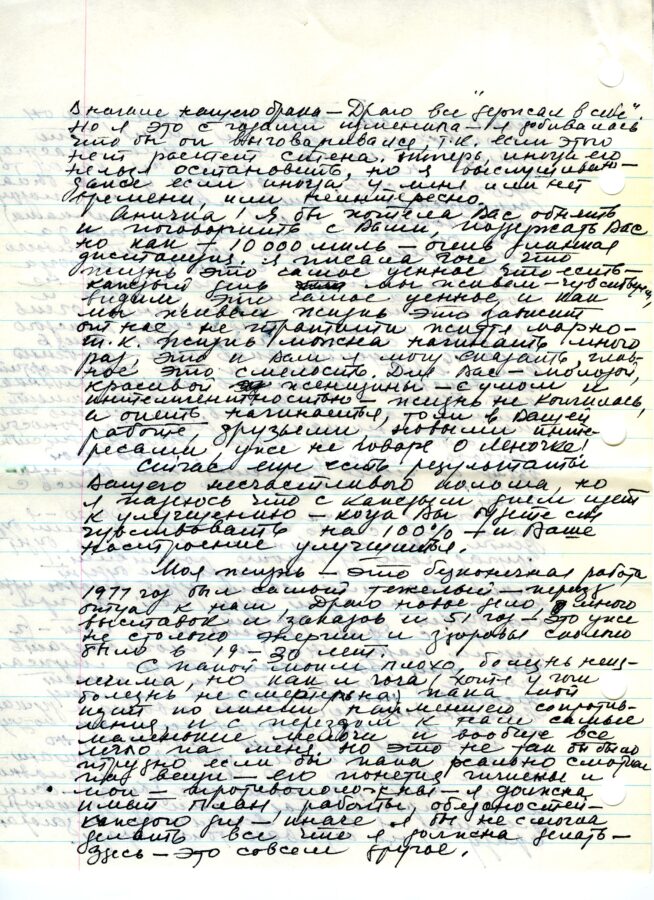 В начале нашего брака – Драго всё "держал в себе".
Но я это с годами изменила – я добивалась
что бы он выговаривался, т.к. если этого
нет растет стена. Теперь, иногда его
нельзя остановить, но я выслушиваю –
даже если иногда у меня или нет
времени, или неинтересно.
Аничка! Я бы хотела Вас обнять
и поговорить с Вами, поддержать Вас
но как – 10 000 миль – очень длинная
дистанция. Я писала Гоге что
жизнь это самое ценное что есть –
каждый день мы живем – чувствуем,
видим это самое ценное и как
мы живем жизнь это зависит
от нас, не тратити жития марно –
т.к. жизнь можна начинать много
раз, это и Вам я могу сказать, глав-
ное это смелость. Для Вас – молодой,
красивой женщины – с умом и
интелигентностью – жизнь не кончилась,
а опять начинается, толи в Вашей
работе, друзьями новыми инте-
ресами, уже не говоря о Леночке!
Сейчас еще есть результаты
Вашего несчастливого полома, но
я надеюсь что с каждым днем идет
к улучшению – когда Вы будете себя
чувствовать на 100% – и Ваше
настроение улучшится.
Моя жизнь – это бесконечная работа
1977 год был самый тяжелый – переезд
отца к нам, Драго новое дело, много
выставок и заказов и 51 год – это уже
не столько энергии и здоровья сколько
было в 19–30 лет.
С папой моим плохо, болезнь неиз-
лечима, но как и Гога (хотя у Гоги
болезнь не смертельна) папа мой
идет по линии наименшего сопротив-
ления и с переездом к нам самые
маленькие мелочи и вообще все
легло на меня. Но это не так бы было
трудно если бы папа реально смотрел
на вещи – его понятия гигиены и
мои – противоположная – я должна
имать план работы, обязаностей –
каждого дня – иначе я бы не смогла
делать все что я должна делать –
Здесь – это совсем другое.